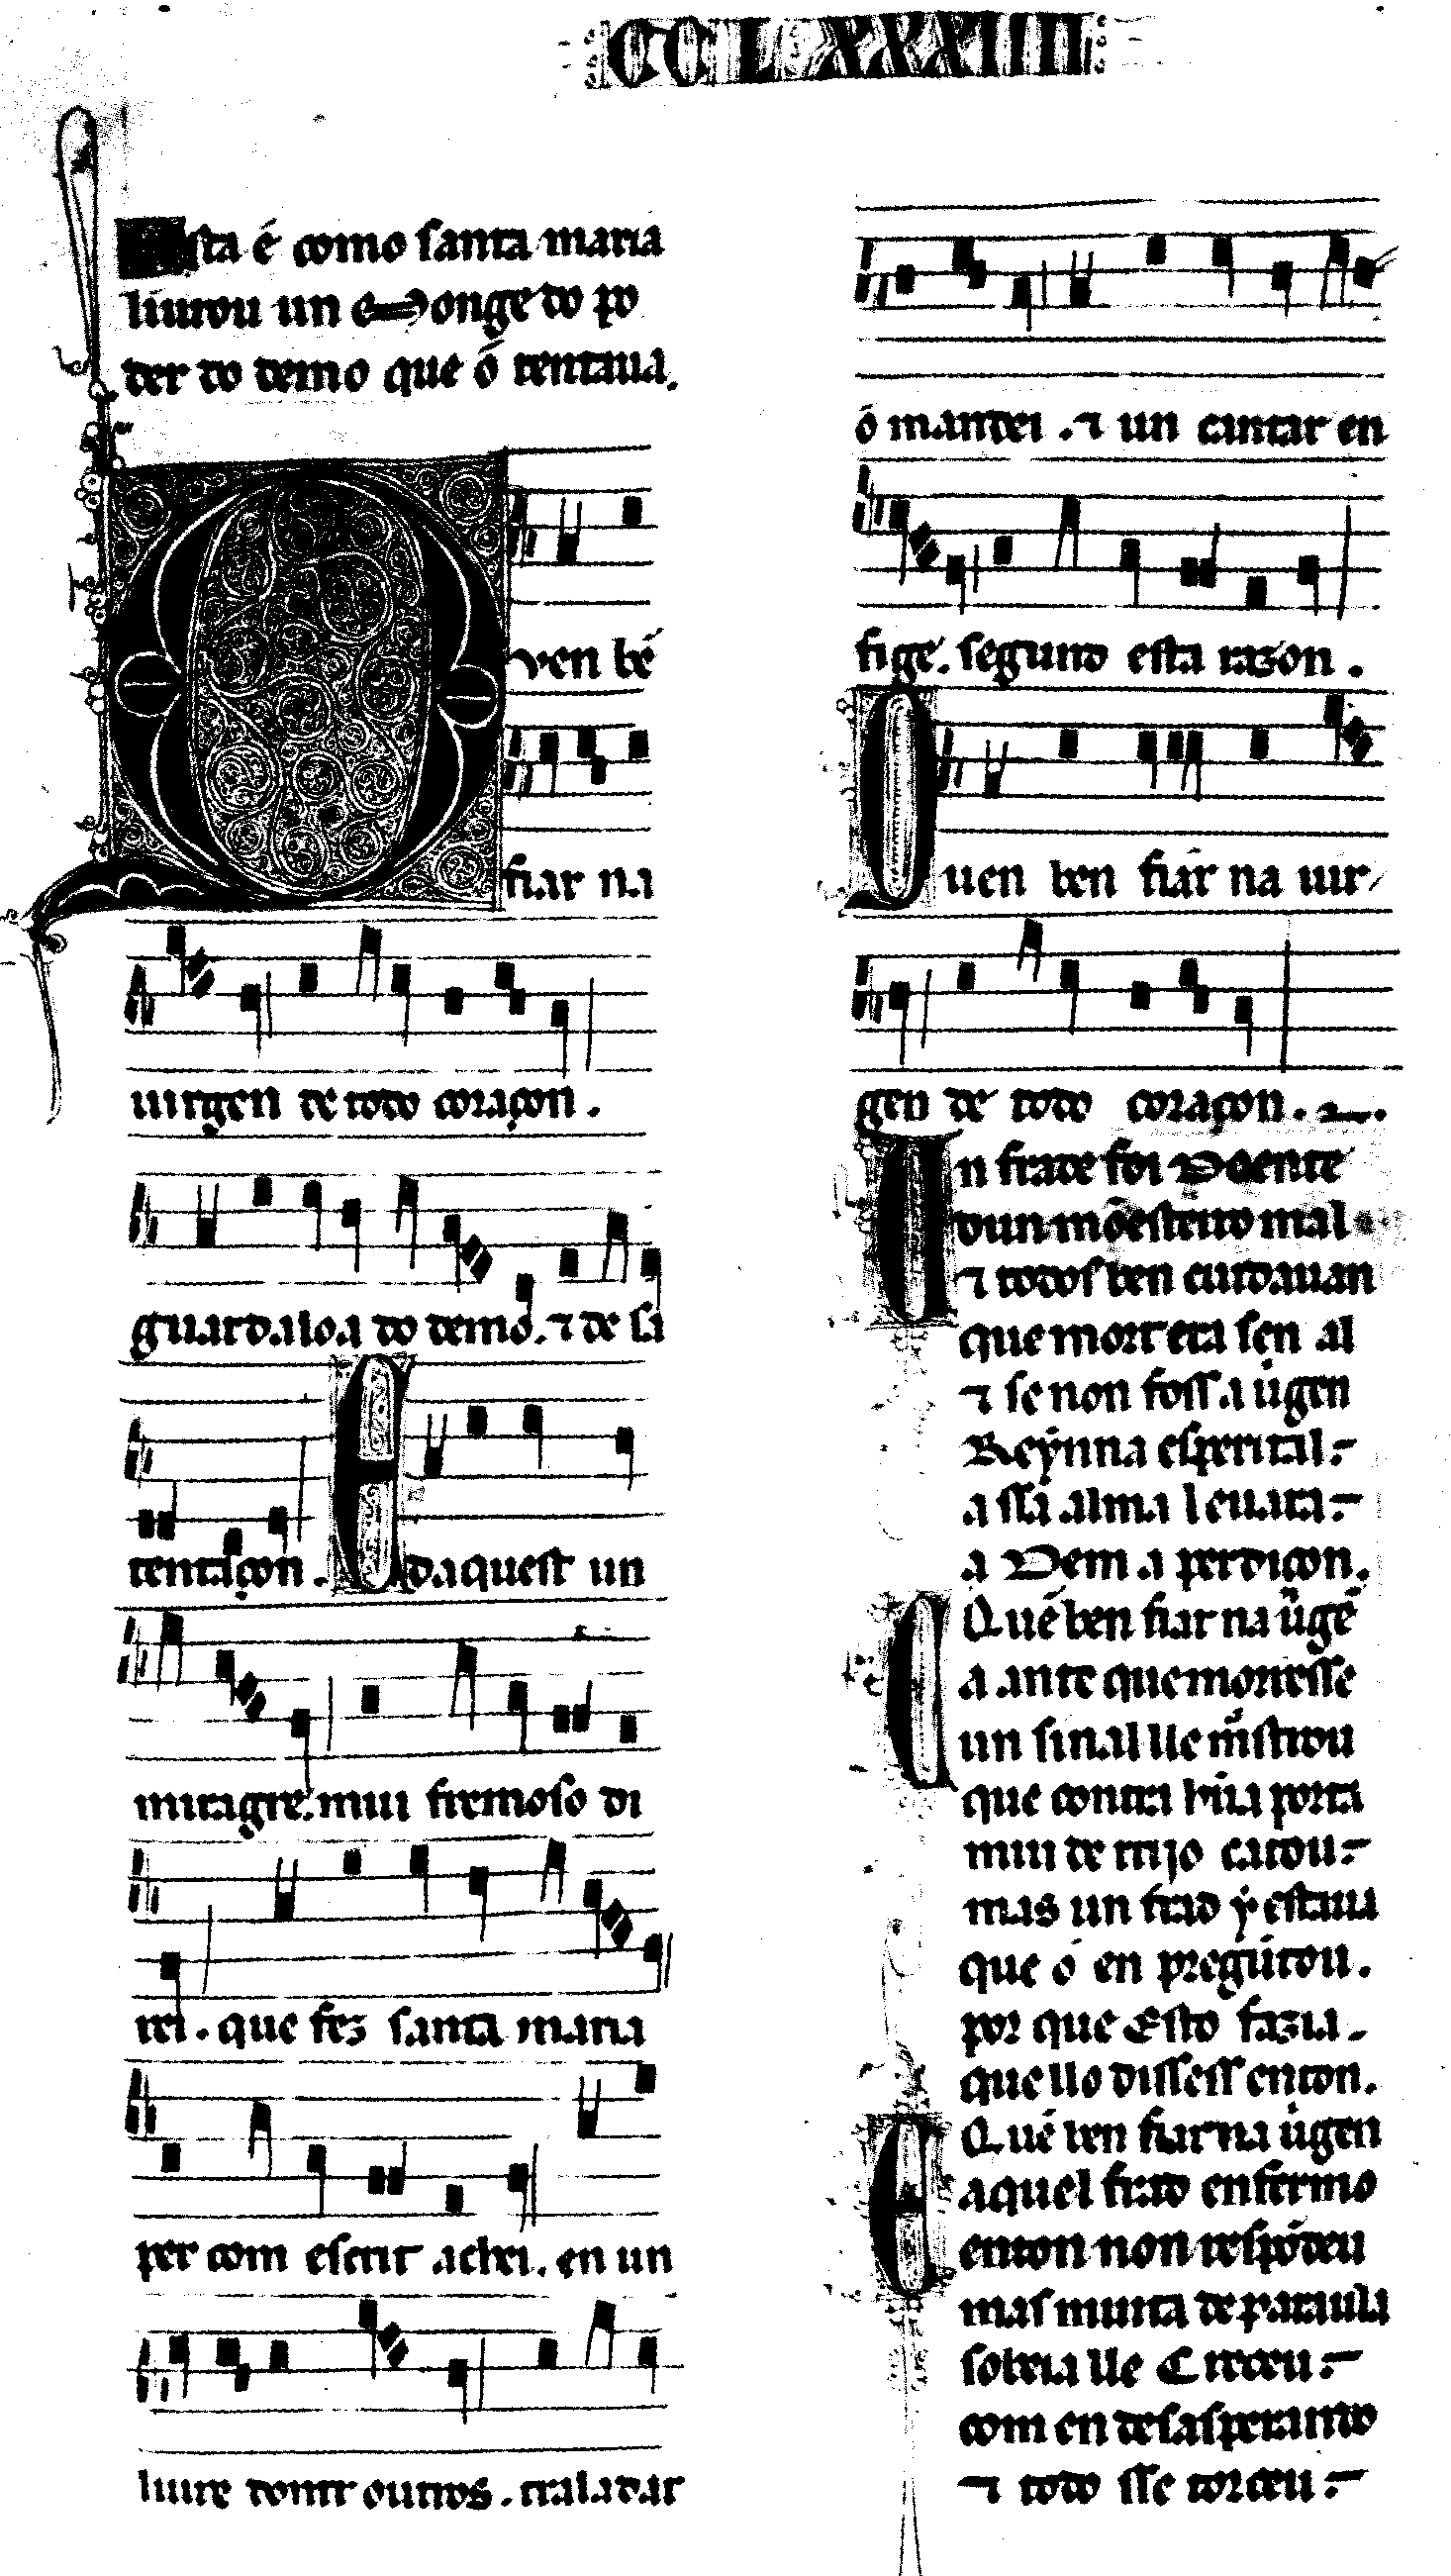 CCLXXXIIII
Esta é como santa maria
liurou un Monge do po
der do demo que ó tentaua.
Quen bẽ
fiar na
uirgen de todo coraçon.
guardaloa do demo. ⁊ de sa
tentaçon. E daquest un
miragre mui fremoso di
rei. que fez santa maria
per com escrit achei. en un
liure dontr outros. traladar
ó mandei. ⁊ un cantar en
fige. segund esta razon.
Quen ben fiar na uir
gen de todo coraçon.
Un frade foi Doente
dun mõesteiro mal
⁊ todos ben cuidauan
que morrera sen al
⁊ se non foss a uigen
Reynna esperital
a ssa alma leuara
a Dem a perdiçon.
Quẽ ben fiar na uigẽ
Ca ante que morresse
un sinal lle mostrou
que contra hũa porta
mui de rrijo catou
mas un frad y estaua
que ó en pregũtou.
por que Esto fazia.
que llo dissess enton.
Quẽ ben fiar na uigen
E aquel frad enfermo
enton non respõdeu
mas muita de paraula
sobeia lle Creceu
com en desasperando
⁊ todo sse torceu